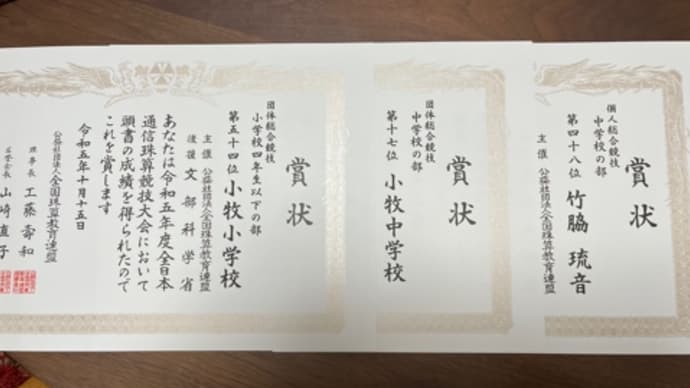 賞状
個人総合競技
中学校の部
第四十八位 竹脇 琉音
主催 公益社団法人全国珠算教育連盟
賞状
団体総合競技
中学校の部
第十七位 小牧中学校
賞状
団体総合競技
小学校四年生以下の部
第五十四位 小牧小学校
主催 公益社団法人全国珠算教育連盟
後援 文部科学省
あなたは令和五年度全日本
通信珠算競技大会において
頭書の成績を得られたので
これを賞します
令和五年十月十五日
公益社団法人全国珠算教育連盟
理事長 工藤壽和
山崎直子